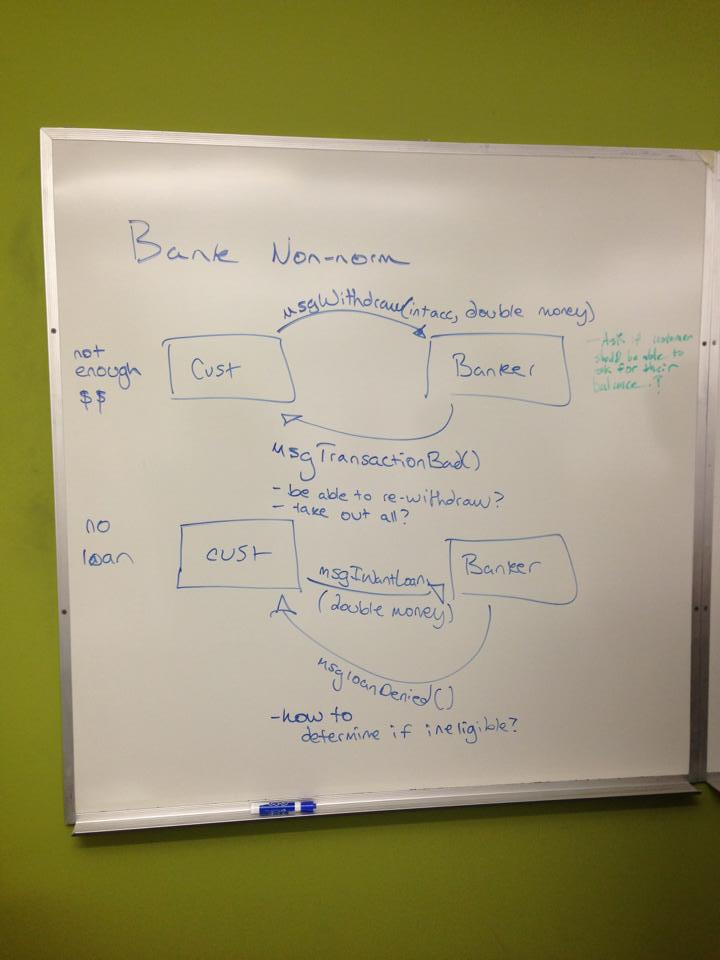 Bank Non-norm
msgWithdraw(int acc, double money)
not
enough
$$
Cust
Banker
- Ask if customer
should be able to
ask for their
balance?
msgTransactionBad()
- be able to re-withdraw?
- take out all?
no
loan
cust
Banker
msgIWantLoan
(double money)
msgloanDenied()
-how to
determine if ineligible?